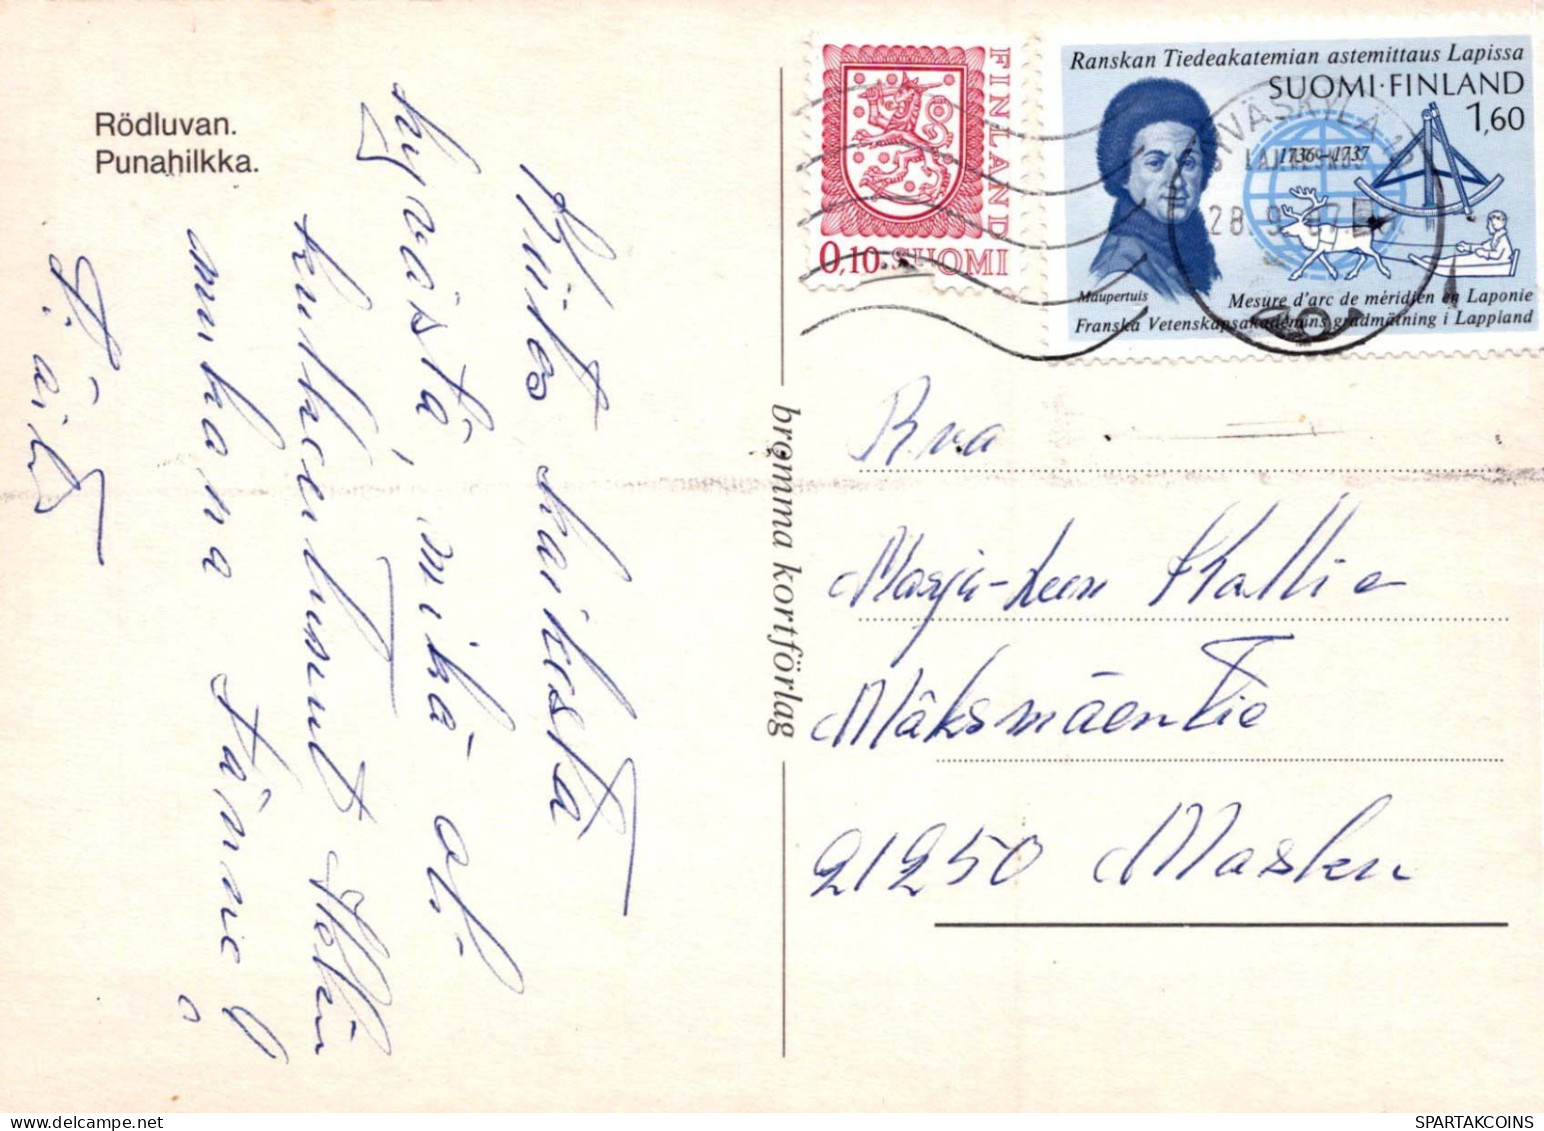 Rödluvan.
Punahilkka.
Kiitos kaikesta
hyvästä, mikä oli
Heli
mukana tänne!
T. äiti
bromma kortförlag
FINLAND
0,10 SUOMI
Ranskan Tiedeakatemian astemittaus Lapissa
SUOMI·FINLAND
1,60
1736–1737
Maupertuis
Mesure d'arc de méridien en Laponie
Franska Vetenskapsakademins gradmätning i Lappland
JYVÄSKYLÄ 10
28.9.87
Rva
Marja-Leen Kallio
Mäksmäentie
21250 Masku
SPARTAKCOINS